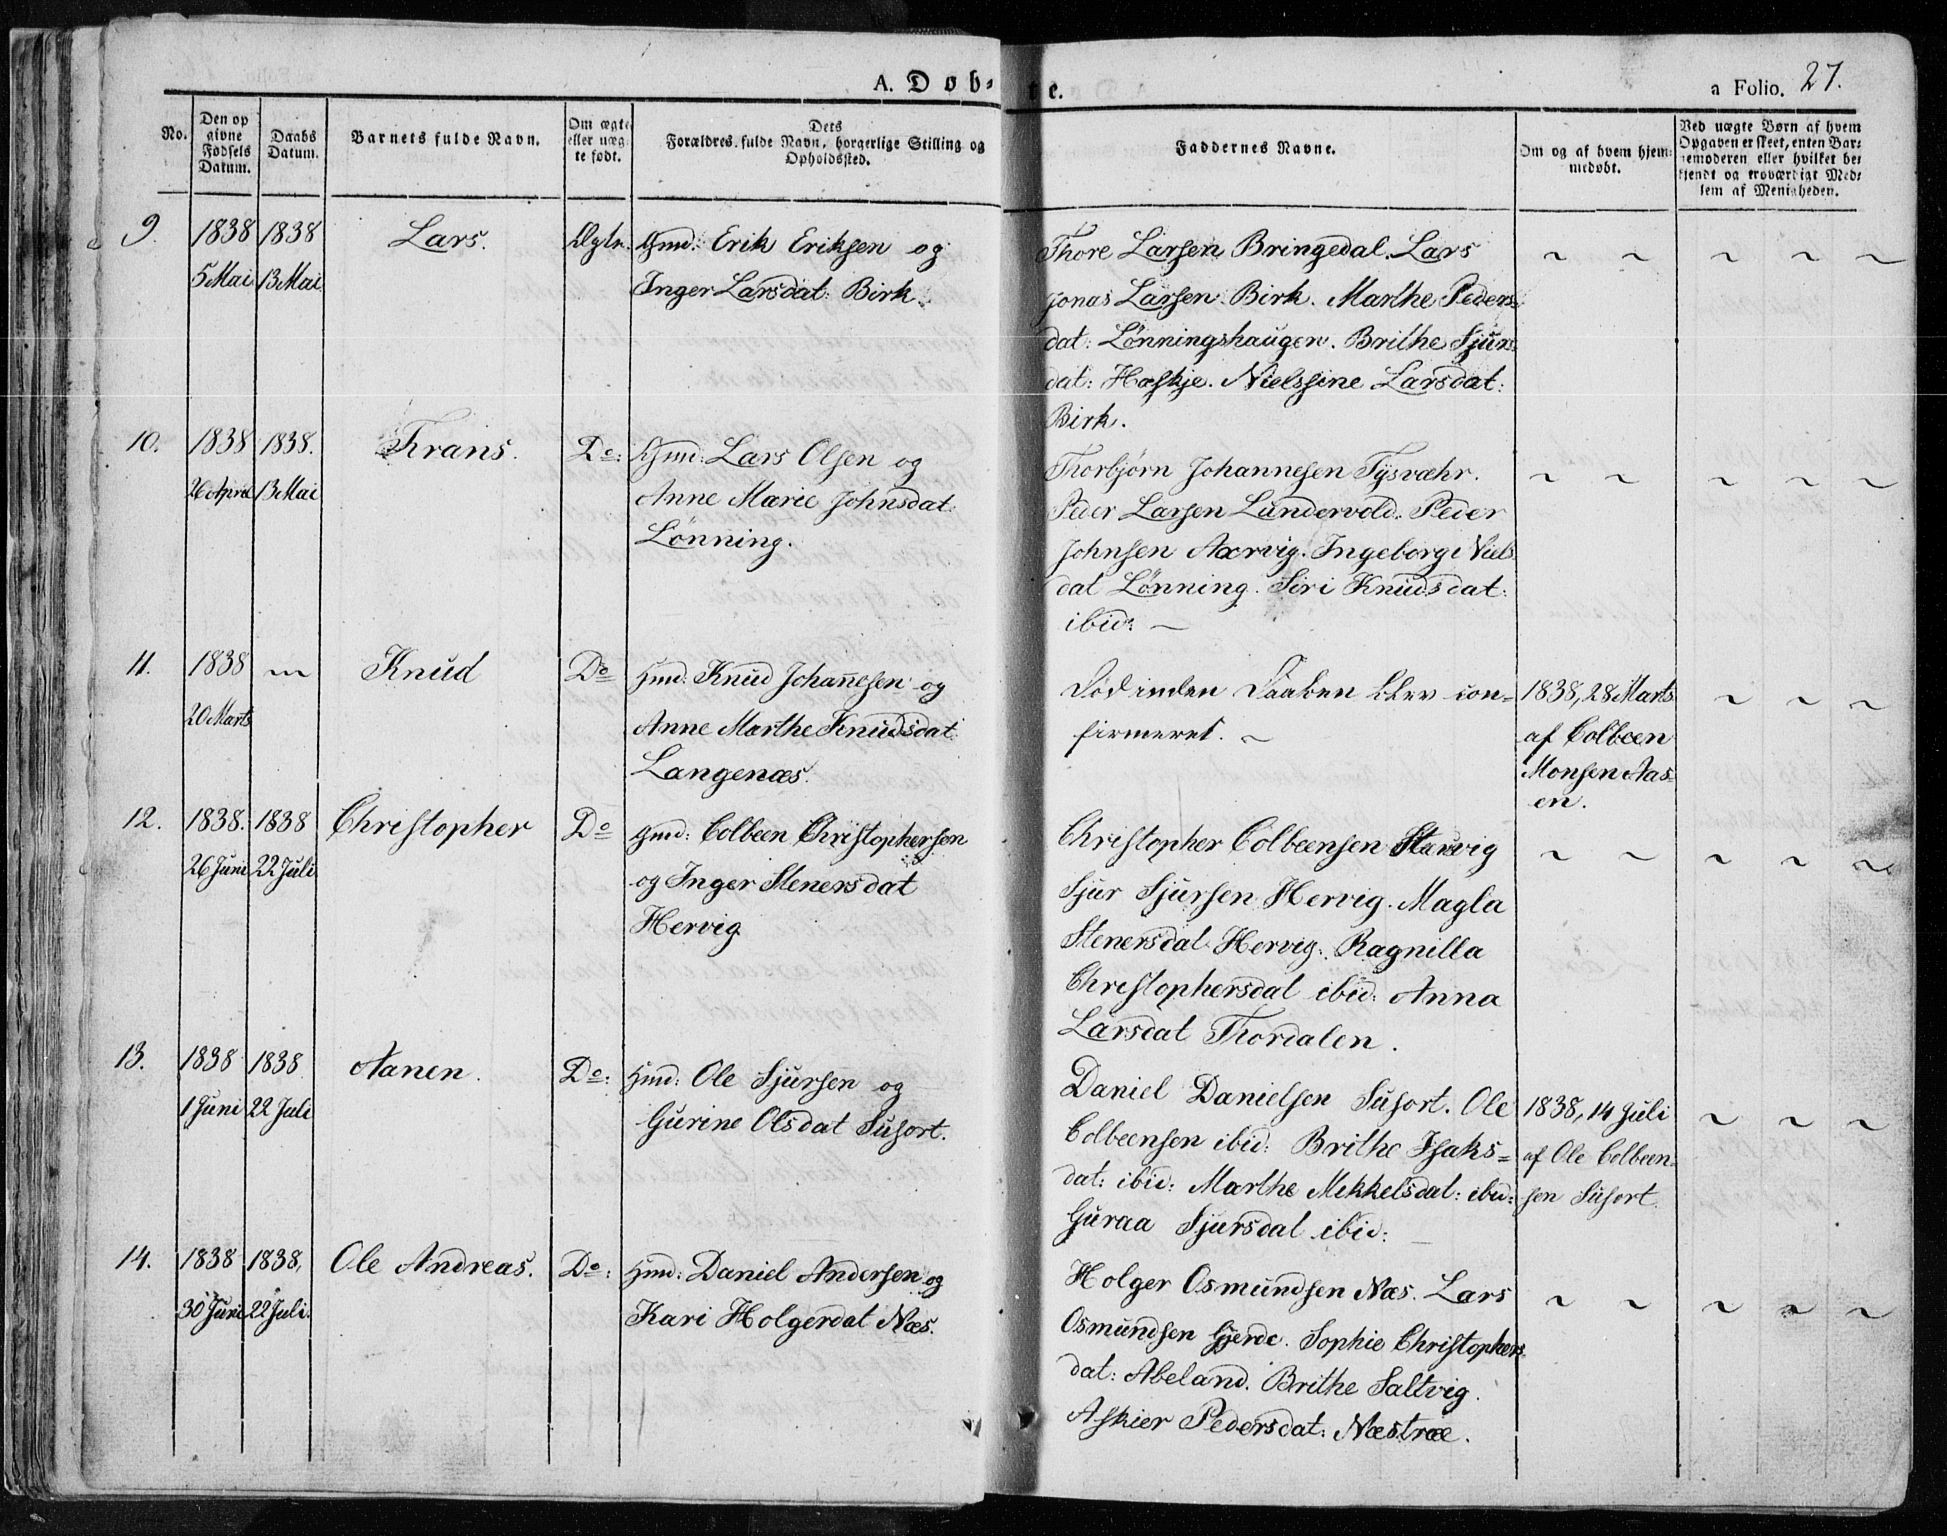 A. Døb-
te.
a Folio. 27.
No.
Den op
givne
Fødsels
Datum.
Daabs
Datum.
Barnets fulde Navn.
Om ægte
eller uæg
te født.
Dets
Forældres fulde Navn, borgerlige Stilling og
Opholdssted.
Faddernes Navne.
Om og af hvem hjem
medøbt.
Ved uægte Børn af hvem
Opgaven er skeet, enten Bar-
nemoderen eller hvilket be-
kjendt og troværdigt Med-
lem af Menigheden.
9.
1838
5 Mai
1838
13 Mai
Lars.
Ægte.
Gmd: Erik Eriksen og
Inger Larsdat: Birk.
Thore Larsen Bringedal. Lars
Jonas Larsen Birk. Marthe Peders=
dat: Lønningshaugen. Brithe Sjurs
dat: Haskje. Nielssine Larsdat:
Birk.
~ ~ ~ ~ ~
10.
1838
26 April
1838.
13 Mai
Frans.
Do:
Gmd: Lars Olsen og
Anne Marie Johnsdat:
Lønning.
Thorbjørn Johannesen Tysvæhr.
Peder Larsen Lundervold. Peder
Johnsen Aarvig. Ingeborg Niels
dat Lønning. Siri Knudsdat:
ibid: —
~ ~ ~ ~ ~
11.
1838
20 Marts
~
Knud
Do
Hmd: Knud Johannesen og
Anne Marthe Knudsdat:
Langenæs
Død inden Daaben blev con=
firmeret. ~
1838, 28 Marts
af Colbeen
Monsen Aas=
en.
~ ~ ~
12.
1838.
26 Juni
1838
22 Juli
Christopher
Do
Gmd: Colbeen Christophersen
og Inger Stenersdat
Hervig
Christopher Colbeensen
Sjur Sjursen Hervig. Magla
Stenersdat Hervig. Ragnilla
Christophersdat ibid: Anna
Larsdat Thordalen.
~ ~ ~ ~ ~
13.
1838
1 Juni
1838
22 Juli
Aanen.
Do:
Hmd: Ole Sjursen og
Gurine Olsdat Susort.
Daniel Danielsen Susort. Ole
Colbeensen ibid: Brithe Isaks=
dat: ibid: Marthe Mekkelsdat: ibid:
Guraa Sjursdat ibid:
1838, 14 Juli
af Ole Colbeen=
sen Susort
~ ~ ~
14.
1838
30 Juni
1838,
22 Juli.
Ole Andreas.
Do:
Hmd: Daniel Andersen og
Kari Holgerdat Næs.
Holger Osmundsen Næs. Lars
Osmundsen Gjerde. Sophie Christophers
dat: Abeland. Brithe Saltvig.
Askier Pedersdat: Næstræe.
~ ~ ~ ~ ~